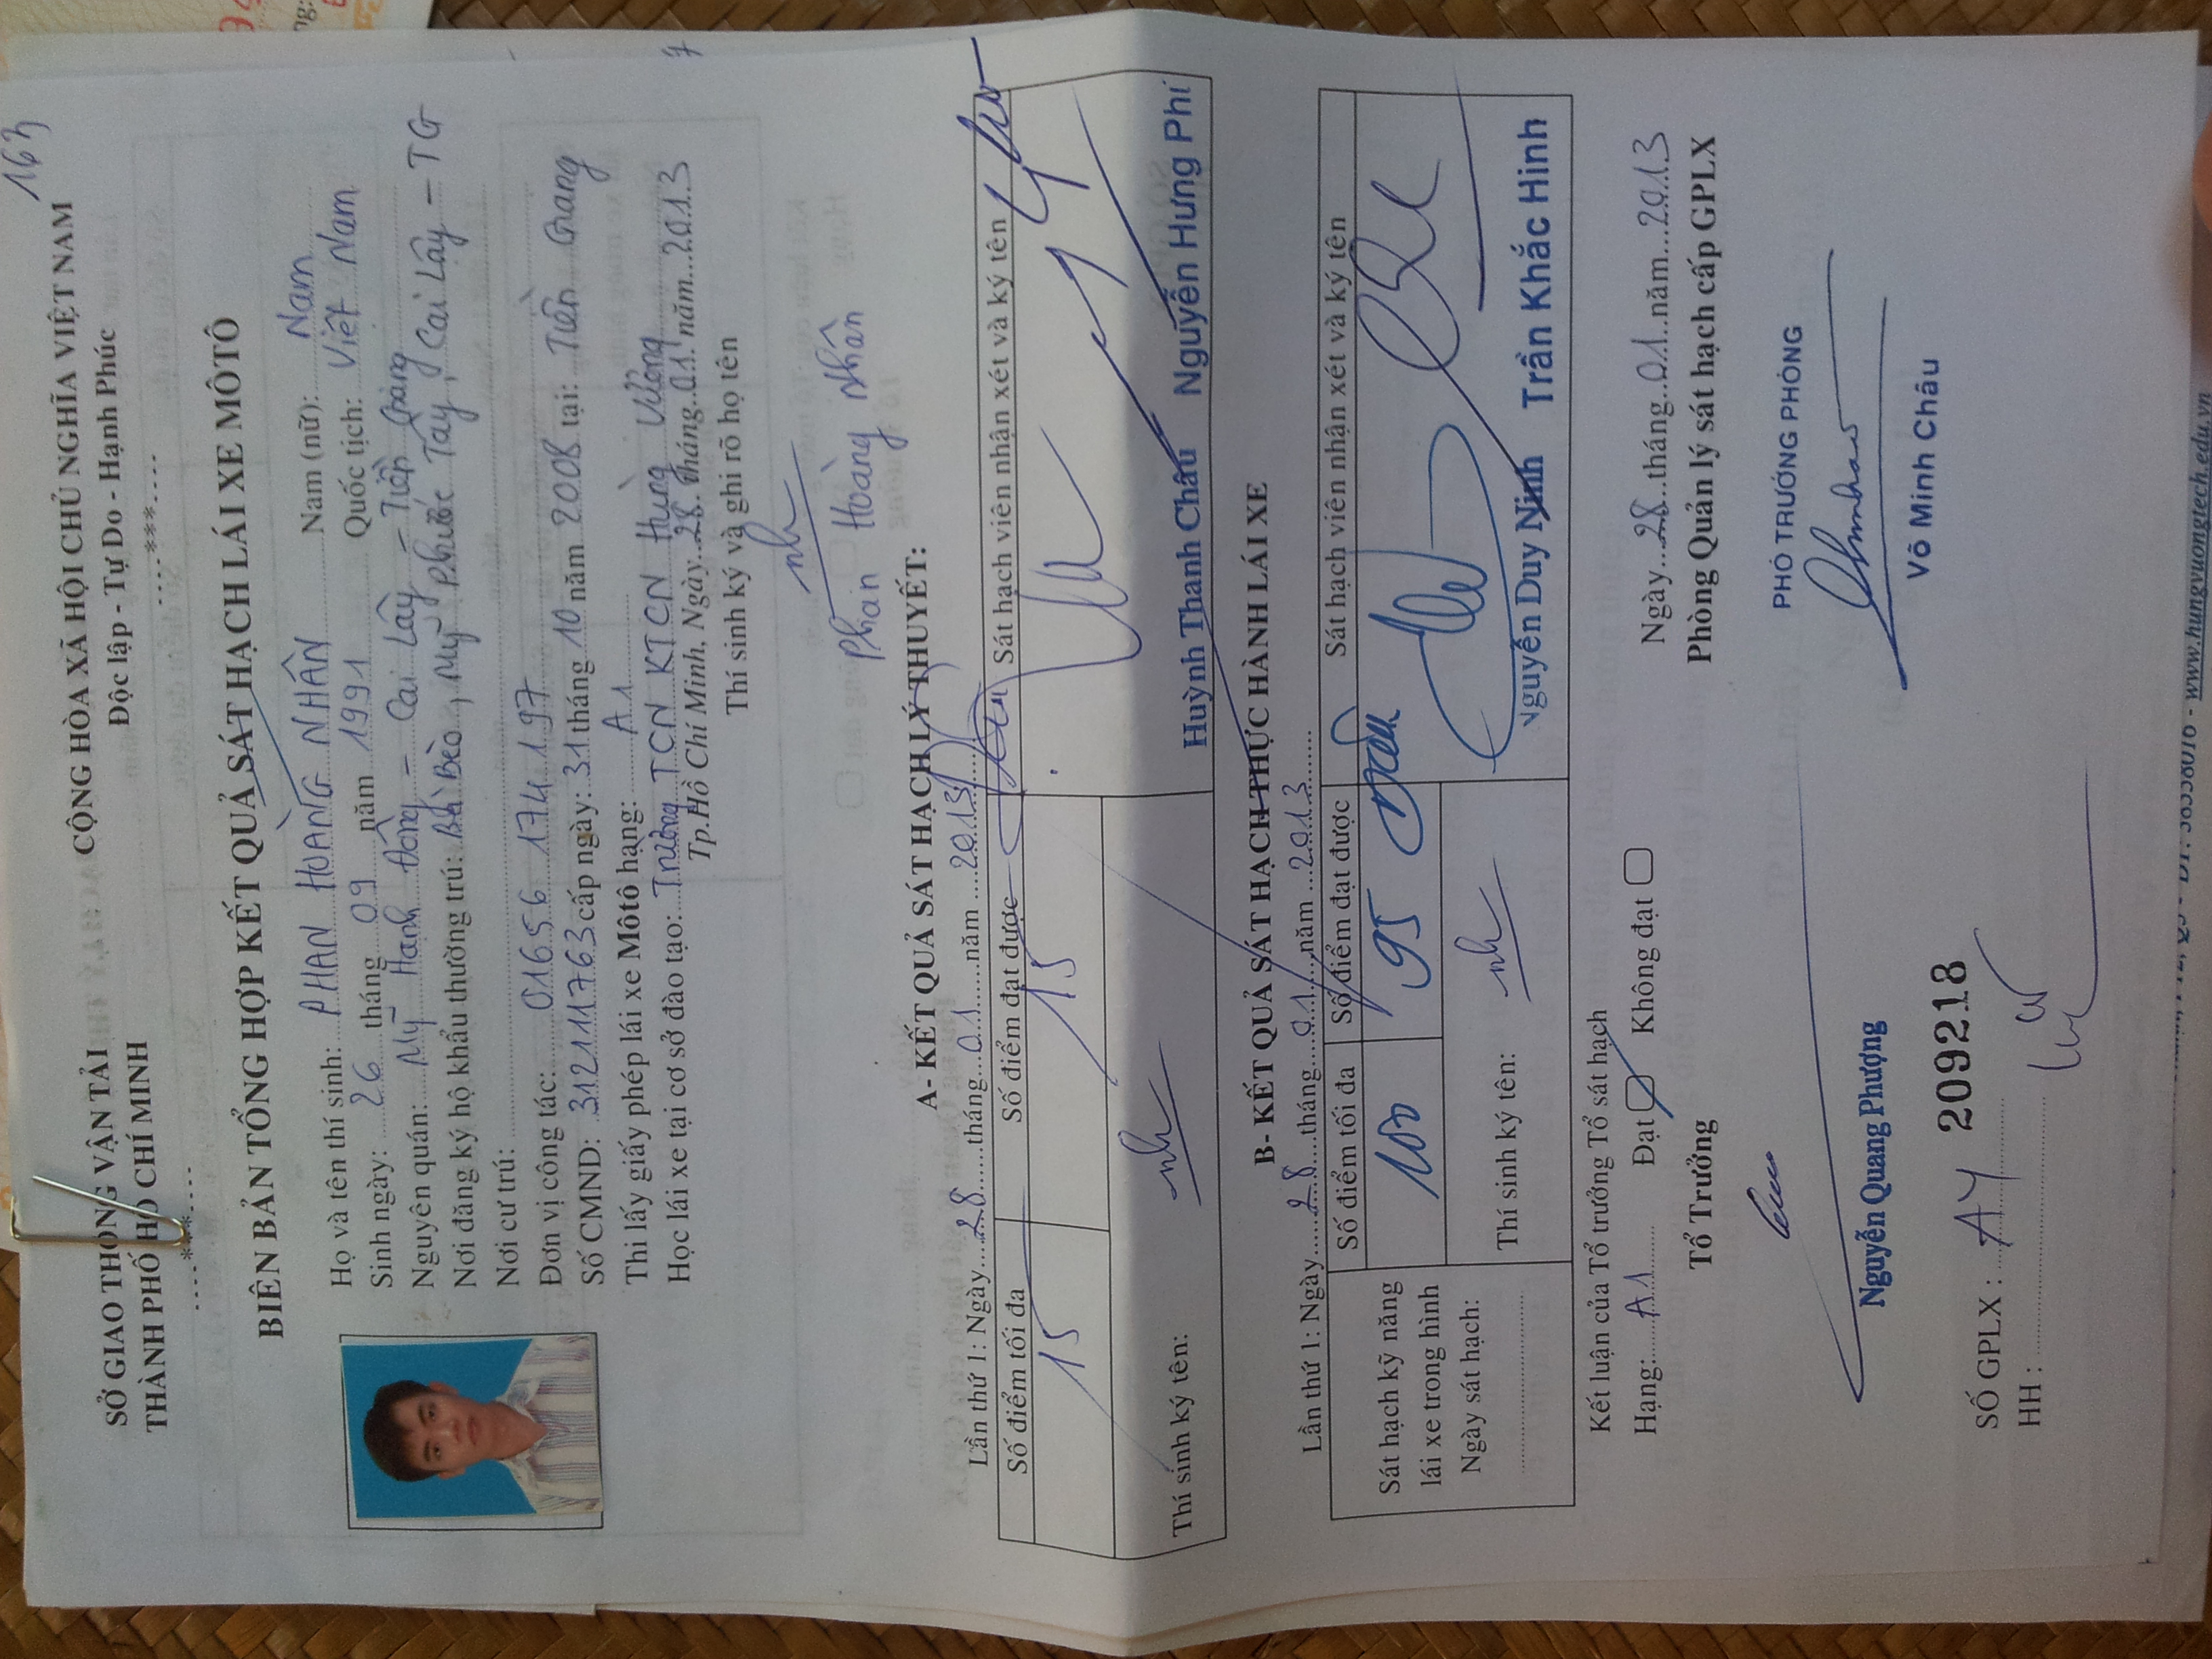 163
SỞ GIAO THÔNG VẬN TẢI
THÀNH PHỐ HỒ CHÍ MINH
----***----
CỘNG HÒA XÃ HỘI CHỦ NGHĨA VIỆT NAM
Độc lập - Tự Do - Hạnh Phúc
----***----
BIÊN BẢN TỔNG HỢP KẾT QUẢ SÁT HẠCH LÁI XE MÔTÔ
Họ và tên thí sinh: PHAN HOÀNG NHÂN Nam (nữ): Nam
Sinh ngày: 26 tháng 09 năm 1991 Quốc tịch: Việt Nam
Nguyên quán: Mỹ Hạnh Đông - Cai Lậy - Tiền Giang
Nơi đăng ký hộ khẩu thường trú: Bà Bèo, Mỹ Phước Tây, Cai Lậy - TG
Nơi cư trú:
Đơn vị công tác: 01656 174 197
Số CMND: 312111763 cấp ngày: 31 tháng 10 năm 2008 tại: Tiền Giang
Thi lấy giấy phép lái xe Môtô hạng: A1
Học lái xe tại cơ sở đào tạo: Trường TCN KTCN Hùng Vương
Tp.Hồ Chí Minh, Ngày 28 tháng 01 năm 2013
Thí sinh ký và ghi rõ họ tên
Phan Hoàng Nhân
A- KẾT QUẢ SÁT HẠCH LÝ THUYẾT:
Lần thứ 1: Ngày 28 tháng 01 năm 2013
Số điểm tối đa Số điểm đạt được Sát hạch viên nhận xét và ký tên
15 15
Thí sinh ký tên:
Huỳnh Thanh Châu Nguyễn Hưng Phí
B- KẾT QUẢ SÁT HẠCH THỰC HÀNH LÁI XE
Lần thứ 1: Ngày 28 tháng 01 năm 2013
Số điểm tối đa Số điểm đạt được Sát hạch viên nhận xét và ký tên
Sát hạch kỹ năng
lái xe trong hình
Ngày sát hạch:
100 95
Thí sinh ký tên:
Nguyễn Duy Ninh Trần Khắc Hinh
Kết luận của Tổ trưởng Tổ sát hạch
Hạng: A1 Đạt Không đạt
Ngày 28 tháng 01 năm 2013
Tổ Trưởng
Phòng Quản lý sát hạch cấp GPLX
PHÓ TRƯỞNG PHÒNG
Nguyễn Quang Phượng
Võ Minh Châu
SỐ GPLX : AY 209218
HH :
P12, Q5 - ĐT: 38558016 - www.hungvuongtech.edu.vn